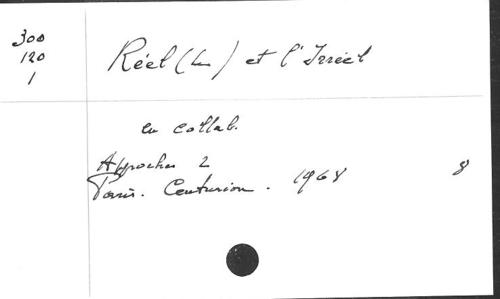 300
120
1
Réel (Le) et l'Irréel
en collab.
Approches 2
Paris. Centurion. 1968 8